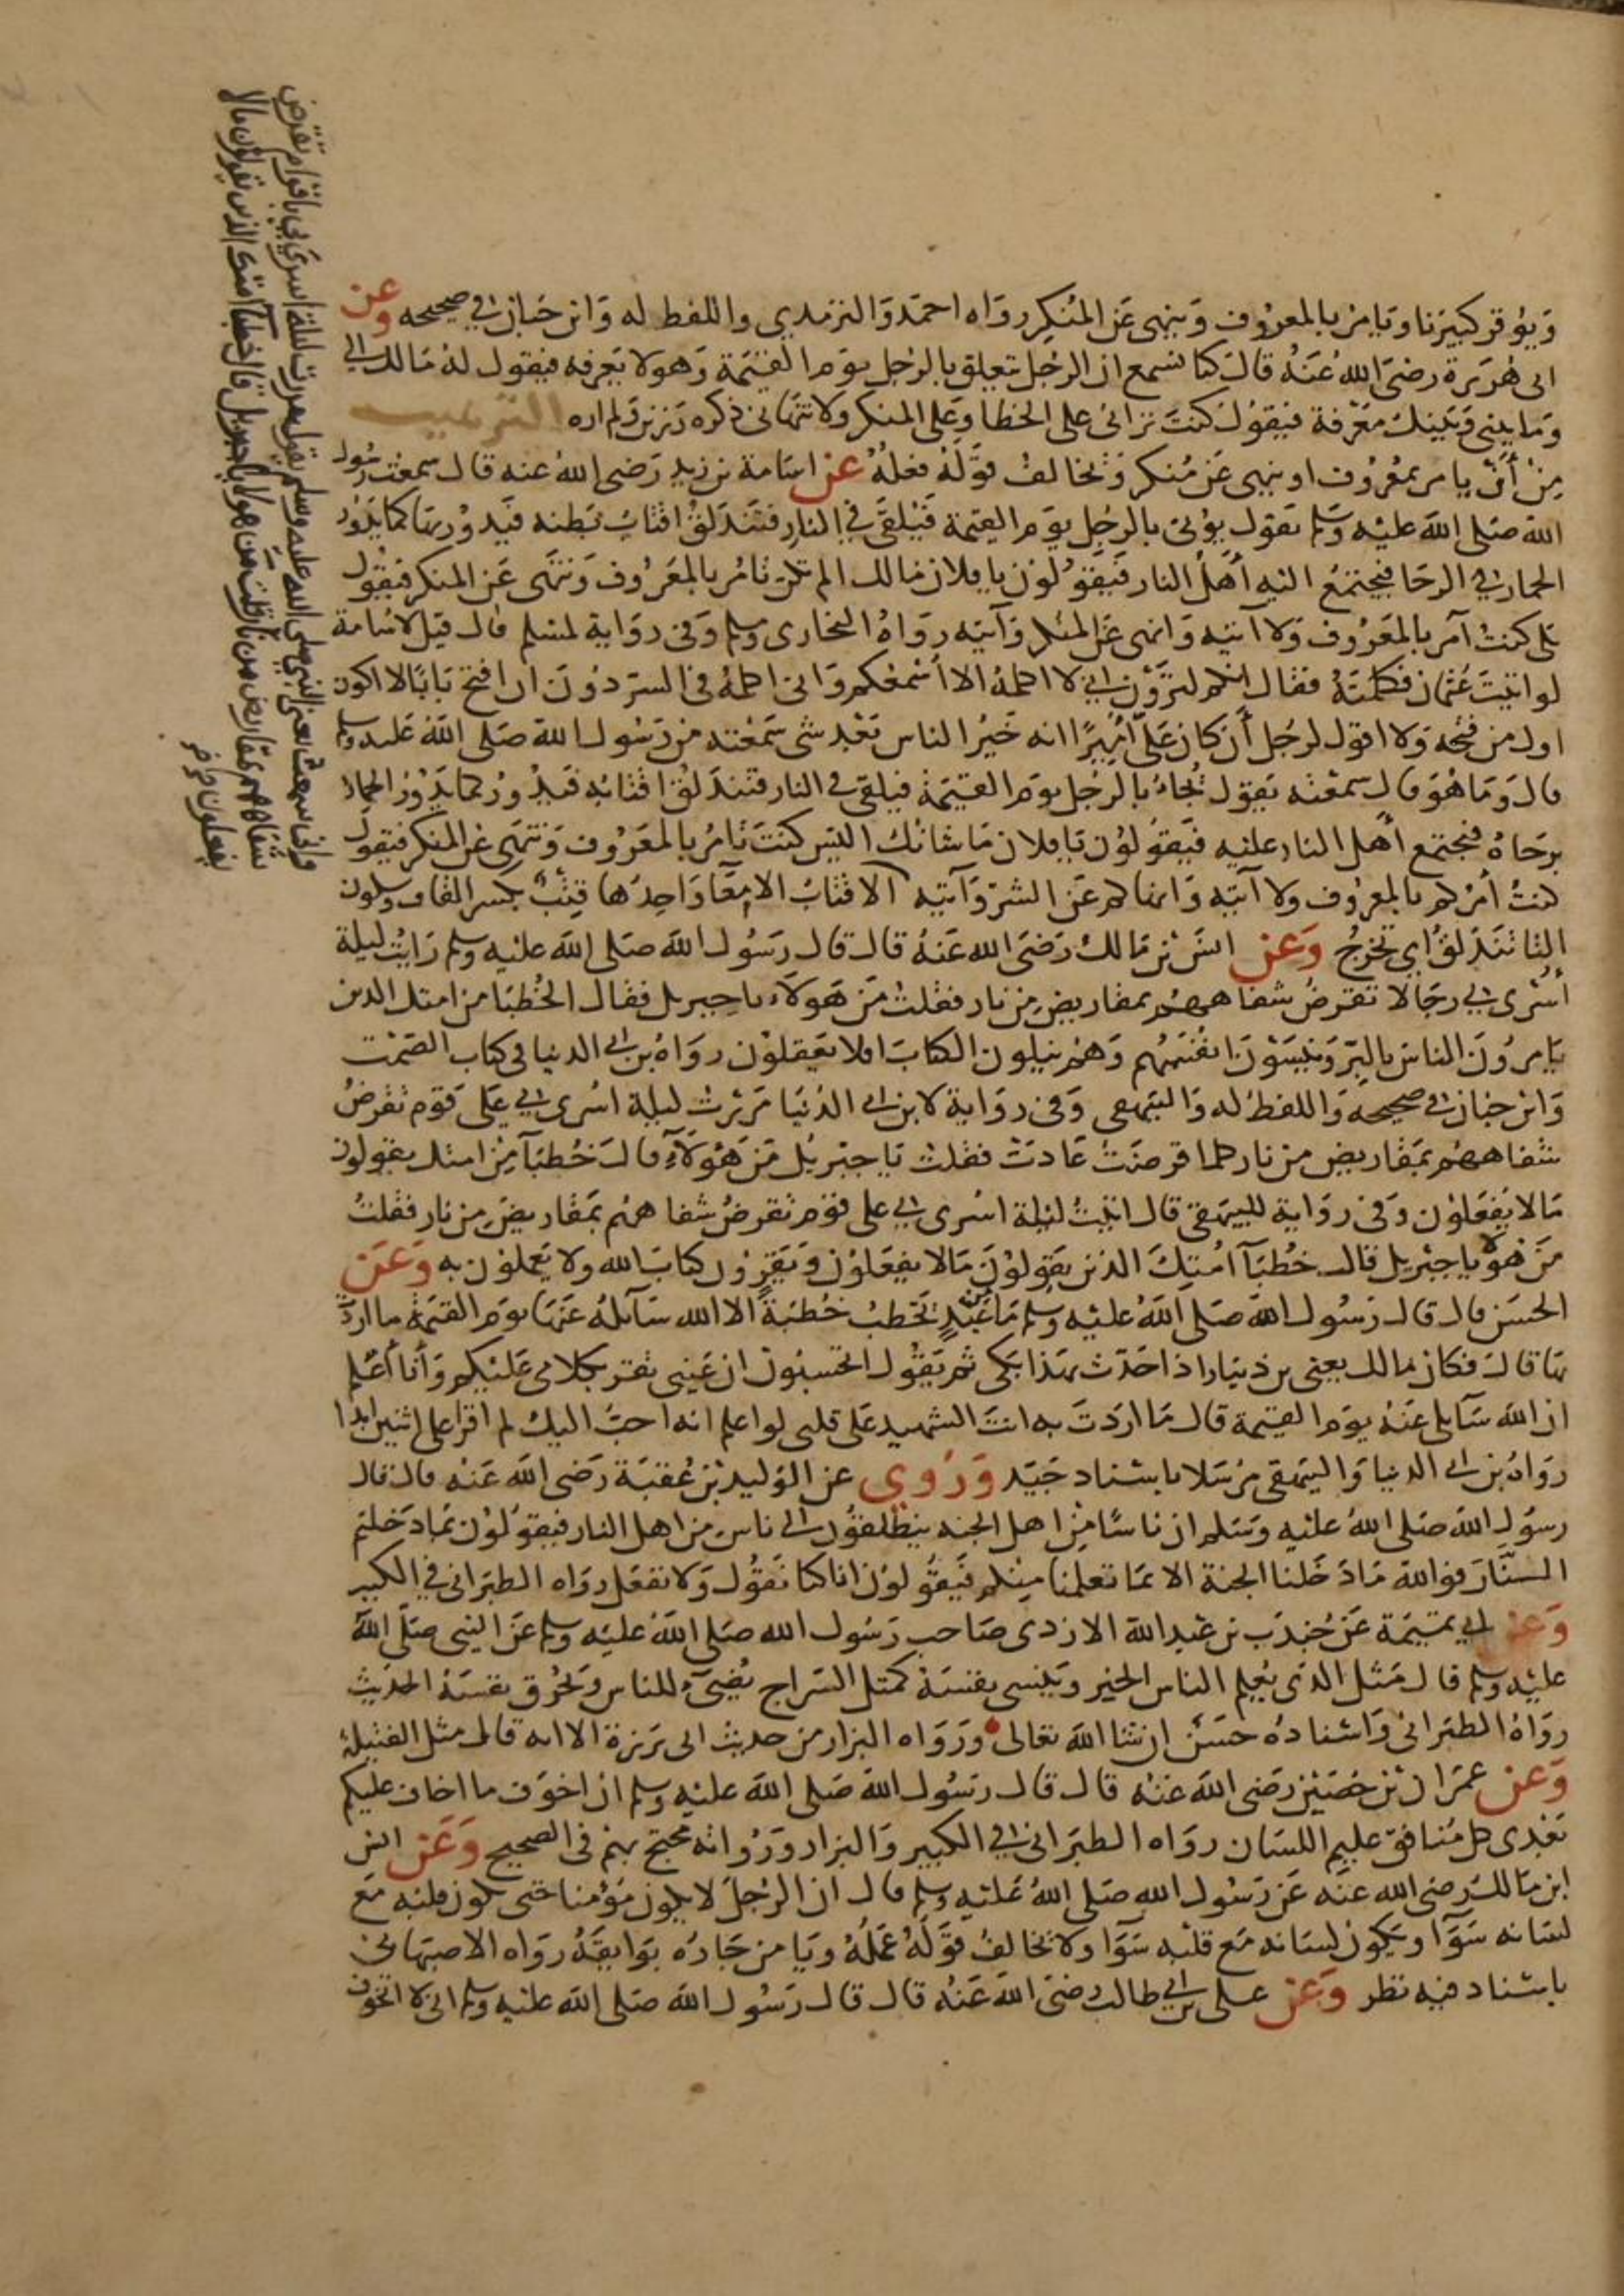 ويوقر كبيرنا ويامر بالمعروف وينهى عن المنكر رواه احمد والترمذي واللفظ له وابن حبان في صحيحه وعن
ابى هريرة رضى الله عنه قال كنا نسمع ان الرجل يتعلق بالرجل يوم القيمة وهو لا يعرفه فيقول له مالك الي
وما بينى وبينك معرفة فيقول كنت ترانى على الخطا وعلى المنكر ولا تنهانى ذكره رزين ولم اره الترهيب
من أن يامر بمعروف او ينهى عن منكر ويخالف قوله فعله عن اسامة بن زيد رضى الله عنه قال سمعت رسول
الله صلى الله عليه وسلم يقول يؤتى بالرجل يوم القيمة فيلقى في النار فتندلق اقتاب بطنه فيدور بها كما يدور
الحمار في الرحا فيجتمع اليه أهل النار فيقولون يا فلان مالك الم تكن تامر بالمعروف وتنهى عن المنكر فيقول
بلى كنت آمر بالمعروف ولا آتيه وانهى عن المنكر وآتيه رواه البخارى ومسلم وفى رواية لمسلم قال قيل لاسامة
لو اتيت عثمان فكلمته فقال انكم لترون اني لا اكلمه الا أسمعكم وانى اكلمه فى السر دون ان افتح بابا لا اكون
اول من فتحه ولا اقول لرجل أن كان علي أميرًا انه خير الناس بعد شى سمعته من رسول الله صلى الله عليه وسلم
قال وما هو قال سمعته يقول يجاء بالرجل يوم القيمة فيلقى فى النار فتندلق اقتابه فيدور كما يدور الحمار
برحاه فيجتمع أهل النار عليه فيقولون يا فلان ما شانك اليس كنت تامر بالمعروف وتنهى عن المنكر فيقول
كنت آمركم بالمعروف ولا آتيه وانهاكم عن الشر وآتيه الاقتاب الامعا واحدها قتب بكسر القاف وسكون
التا تندلق أي تخرج وعن انس بن مالك رضى الله عنه قال قال رسول الله صلى الله عليه وسلم رايت ليلة
أسرى بي رجالا تقرض شفاههم بمقاريض من نار فقلت من هولاء يا جبريل فقال الخطبا من امتك الذين
يامرون الناس بالبر وينسون انفسهم وهم يتلون الكتاب افلا يعقلون رواه بن ابي الدنيا فى كتاب الصمت
وابن حبان في صحيحه واللفظ له والبيهقى وفى رواية لابن ابي الدنيا مررت ليلة اسرى بي على قوم تقرض
شفاههم بمقاريض من نار كلما قرضت عادت فقلت يا جبريل من هؤلاء قال خطبآ من امتك يقولون
مالا يفعلون وفى رواية للبيهقى قال اتيت ليلة اسرى بي على قوم تقرض شفاههم بمقاريض من نار فقلت
من هولا يا جبريل قال خطبآ امتك الذين يقولون مالا يفعلون ويقرون كتاب الله ولا يعملون به وعن
الحسن قال قال رسول الله صلى الله عليه وسلم ما من عبد يخطب خطبة الا الله سآئله عنها يوم القيمة ما اردت
بها قال فكان مالك يعنى بن دينار اذا حدث بهذا بكى ثم يقول اتحسبون ان عينى تقر بكلامى عليكم وأنا أعلم
ان الله سآئلى عنه يوم القيمة قال ما اردت به انت الشهيد على قلبى لو اعلم انه احب اليك لم اقرا على اثنين ابدا
رواه بن ابي الدنيا والبيهقى مرسلا باسناد جيد وروي عن الوليد بن عقبة رضى الله عنه قال قال
رسول الله صلى الله عليه وسلم ان ناسًا من اهل الجنه ينطلقون الى ناس من اهل النار فيقولون بما دخلتم
النار فوالله ما دخلنا الجنة الا بما تعلمنا منكم فيقولون انا كنا نقول ولا نفعل رواه الطبرانى في الكبير
وعن ابي تميمة عن جندب بن عبد الله الازدى صاحب رسول الله صلى الله عليه وسلم عن النبى صلى الله
عليه وسلم قال مثل الذى يعلم الناس الخير وينسى نفسه كمثل السراج يضيء للناس ويحرق نفسه الحديث
رواه الطبرانى واسناده حسن ان شا الله تعالى ورواه البزار من حديث ابى برزة الا انه قال مثل الفتيلة
وعن عمران بن حصين رضى الله عنه قال قال رسول الله صلى الله عليه وسلم ان اخوف ما اخاف عليكم
بعدى كل منافق عليم اللسان رواه الطبرانى في الكبير والبزار ورواته محتج بهم فى الصحيح وعن انس
ابن مالك رضى الله عنه عن رسول الله صلى الله عليه وسلم قال ان الرجل لا يكون مؤمنا حتى يكون قلبه مع
لسانه سوآ ويكون لسانه مع قلبه سوآ ولا يخالف قوله عمله ويامن جاره بوايقه رواه الاصبهانى
باسناد فيه نظر وعن على بن ابي طالب رضى الله عنه قال قال رسول الله صلى الله عليه وسلم انى لا اتخوف
وانى سمعته يعنى النبى صلى الله عليه وسلم يقول مررت ليلة اسري بي باقوام تقرض
شفاههم بمقاريض من نار قلت من هولا يا جبريل قال خطبآ امتك الذين يقولون مالا
يفعلون